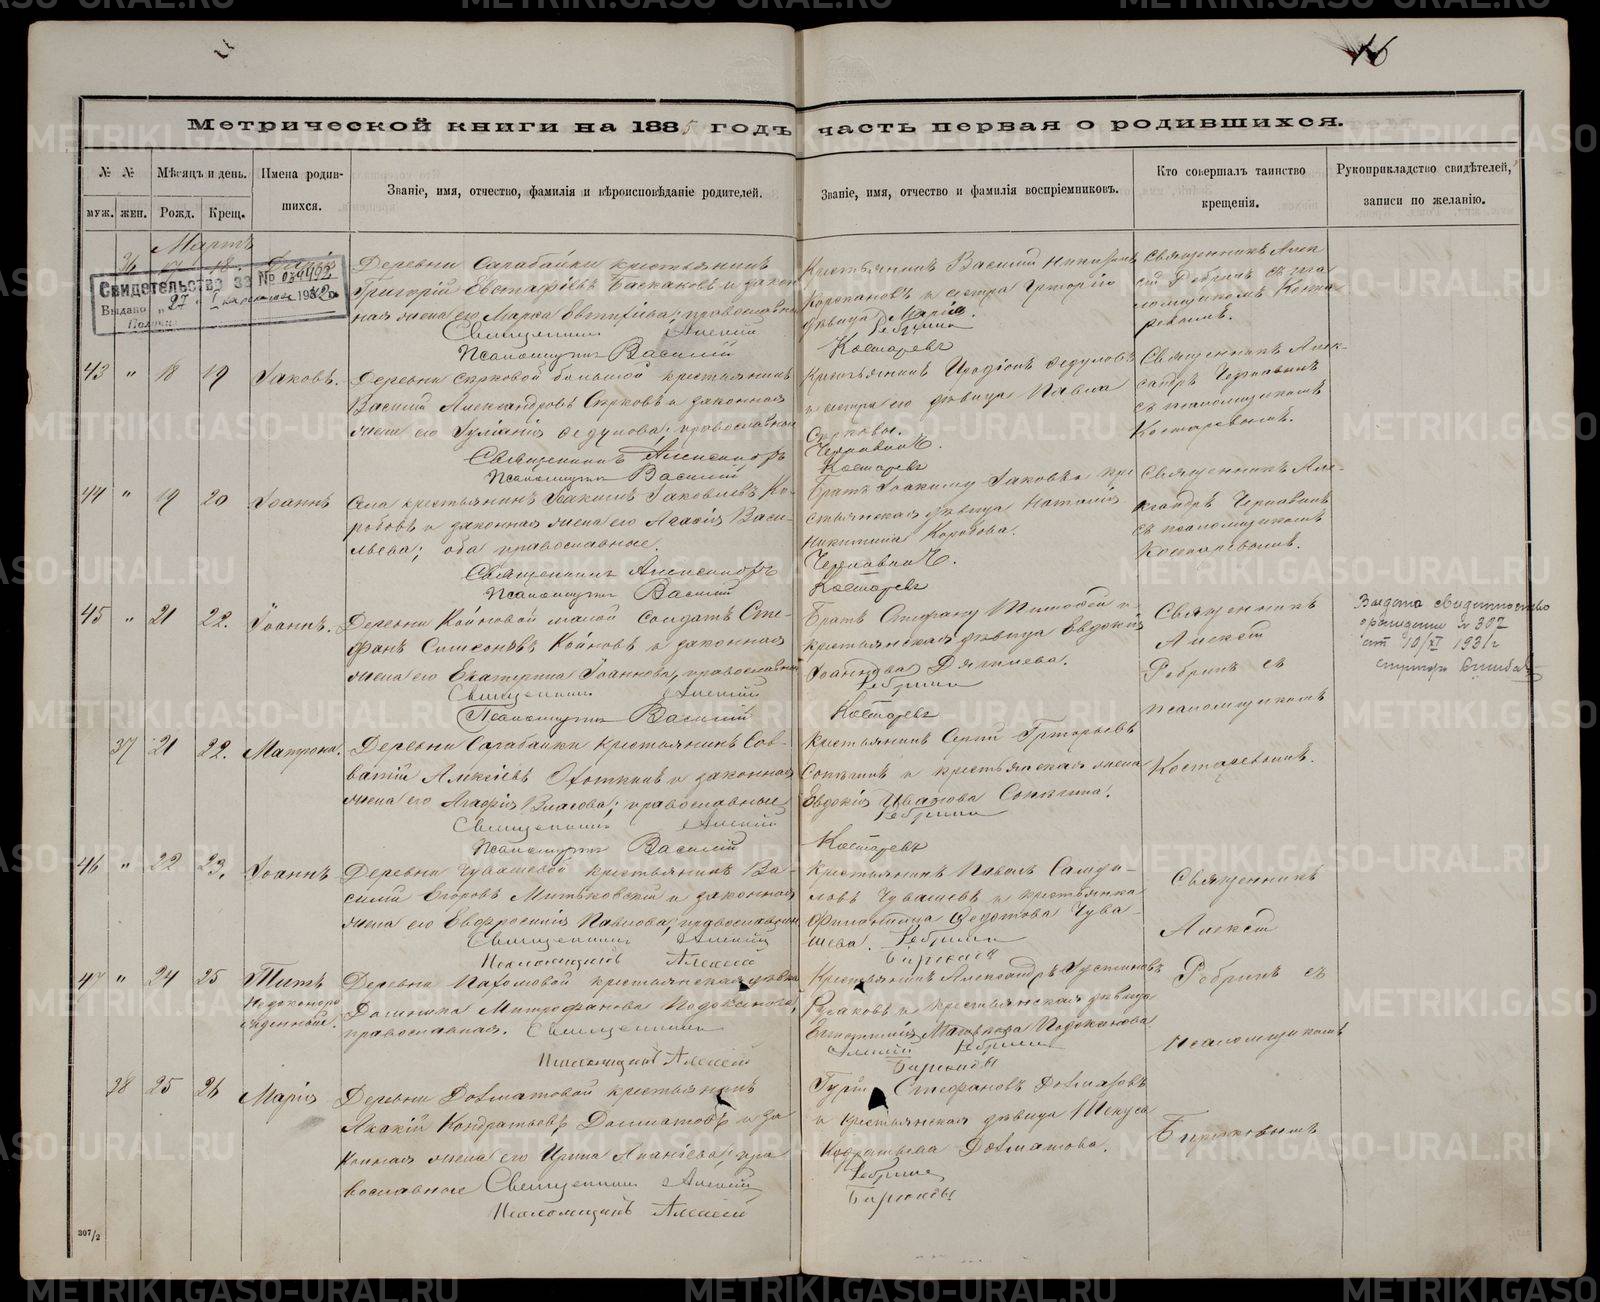 16
Метрической книги на 1885 годъ часть первая о родившихся.
№ № Мѣсяцъ и день. Имена родив-
шихся.
муж. жен. Рожд. Крещ.
Званіе, имя, отчество, фамилія и вѣроисповѣданіе родителей.
Званіе, имя, отчество и фамилія воспріемниковъ.
Кто совершалъ таинство
крещенія.
Рукоприкладство свидѣтелей,
записи по желанію.
Мартъ
36 17 18
Свидетельство за № 034492
Выдано „27“ 1932
Деревни Сагабайки крестьянинъ
Григорій Евстафіевъ Баскановъ и закон
ная жена его Марѳа Евтихіева; православн
Священникъ Алексій
Псаломщикъ Василій
Крестьянинъ Василій
и сестра Григорію
дѣвица Марія.
Ребринъ
Костаревъ
Священникъ Алек
сій Ребринъ съ пса
ломщикомъ Коста
ревымъ.
43 " 18 19 Іаковъ.
Деревни Сѣрковой большой крестьянинъ
Василій Александровъ Сѣрковъ и законная
жена его Іуліанія Ѳедулова; православные
Священникъ Александръ
Псаломщикъ Василій
Крестьянинъ Иродіонъ Ѳедуловъ
и сестра его дѣвица Павла
Сѣрковы.
Чернавинъ.
Костаревъ
Священникъ Алек-
сандръ Чернавинъ
съ псаломщикомъ
Костаревымъ.
44 " 19 20 Іоаннъ
Села крестьянинъ Іоакимъ Іаковлевъ Ко-
робовъ и законная жена его Агаѳія Васи-
льева; оба православные.
Священникъ Александръ
Псаломщикъ Василій
Братъ Іоакиму Іаковъ и кре
стьянская дѣвица Наталія
Никитина Коробова.
Чернавинъ.
Костаревъ
Священникъ Але-
ксандръ Чернавинъ
съ псаломщикомъ
Костаревымъ.
45 " 21 22. Іоаннъ.
Деревни Койновой малой солдатъ Сте-
фанъ Симеоновъ Койновъ и законная
жена его Екатерина Іоаннова; православные
Священникъ Алексій
Псаломщикъ Василій
Братъ Стефану Тимоѳей и
крестьянская дѣвица Евдокія
Іоаннова Дягилева.
Ребринъ
Костаревъ
Священникъ
Алексій
Ребринъ съ
псаломщикомъ
Костаревымъ.
Выдано свидетельство
о рождении № 307
от 10/XI 1931 г
37 21 22. Матрона.
Деревни Сагабайки крестьянинъ Сав-
ватій Алексіевъ Охоткинъ и законная
жена его Агафія Власова; православные
Священникъ Алексій
Псаломщикъ Василій
Крестьянинъ Сергій Григорьевъ
Сопыгинъ и крестьянская жена
Евдокія Иванова Сопыгина.
Ребринъ
Костаревъ
46 " 22 23. Іоаннъ
Деревни Чувашевой крестьянинъ Ва-
силій Егоровъ Митьковскій и законная
жена его Евфросинія Павлова; православные
Священникъ Алексій
Псаломщикъ Алексій
Крестьянинъ Павелъ Самои-
ловъ Чувашевъ и крестьянка
Филантица Ѳедотова Чува-
шева. Ребринъ
Бирюковъ
Священникъ
Алексій
Ребринъ съ
псаломщикомъ
Бирюковымъ
47 " 24 25 Титъ
незаконоро
жденный.
Деревни Пахомовой крестьянская дѣвка
Домника Митрофанова Подоксенова,
православная. Священникъ
Псаломщикъ Алексій
Крестьянинъ Александръ Іустиновъ
Русаковъ и крестьянская дѣвица
Матвѣева Подоксенова
Алексій Ребринъ
Бирюковъ
38 25 26 Марія
Деревни Долматовой крестьянинъ
Акакій Кондратьевъ Долматовъ и за
конная жена его Ирина Ананіева; пра
вославные Священникъ Алексій
Псаломщикъ Алексій
Гурій Стефановъ Долматовъ
и крестьянская дѣвица Текуса
Кодратьева Долматова.
Ребринъ
Бирюковъ
307/2
METRIKI.GASO-URAL.RU